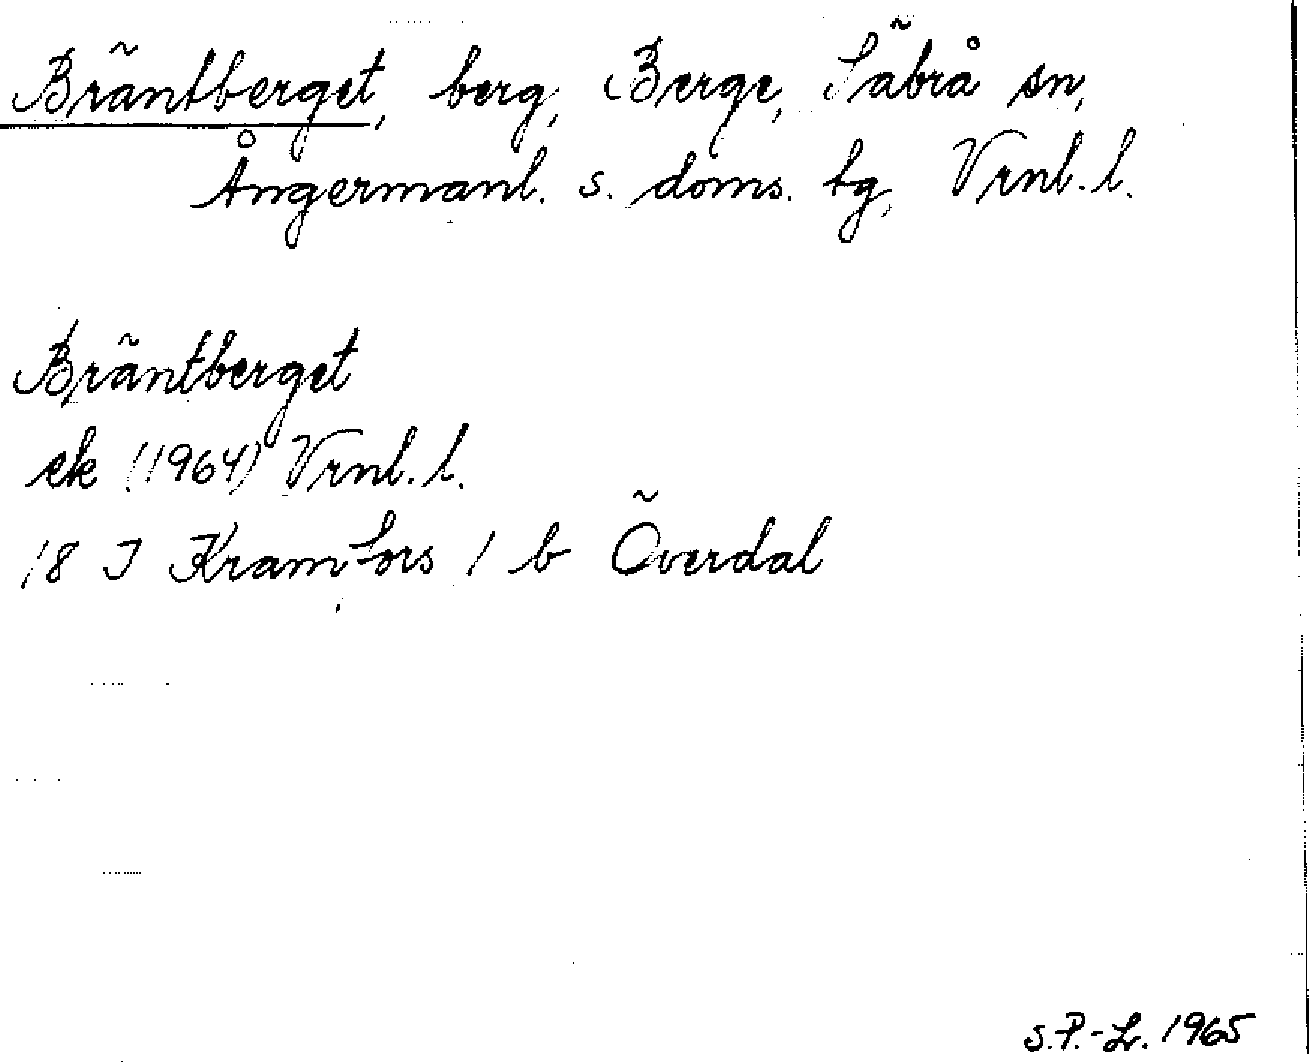 Bräntberget, berg, Berge, Säbrå sn,
Ångermanl. s. doms. tg, Vrnl. l.
Bräntberget
ek (1964) Vrnl. l.
18 I Kramfors 1 b Överdal
S.P.-L. 1965